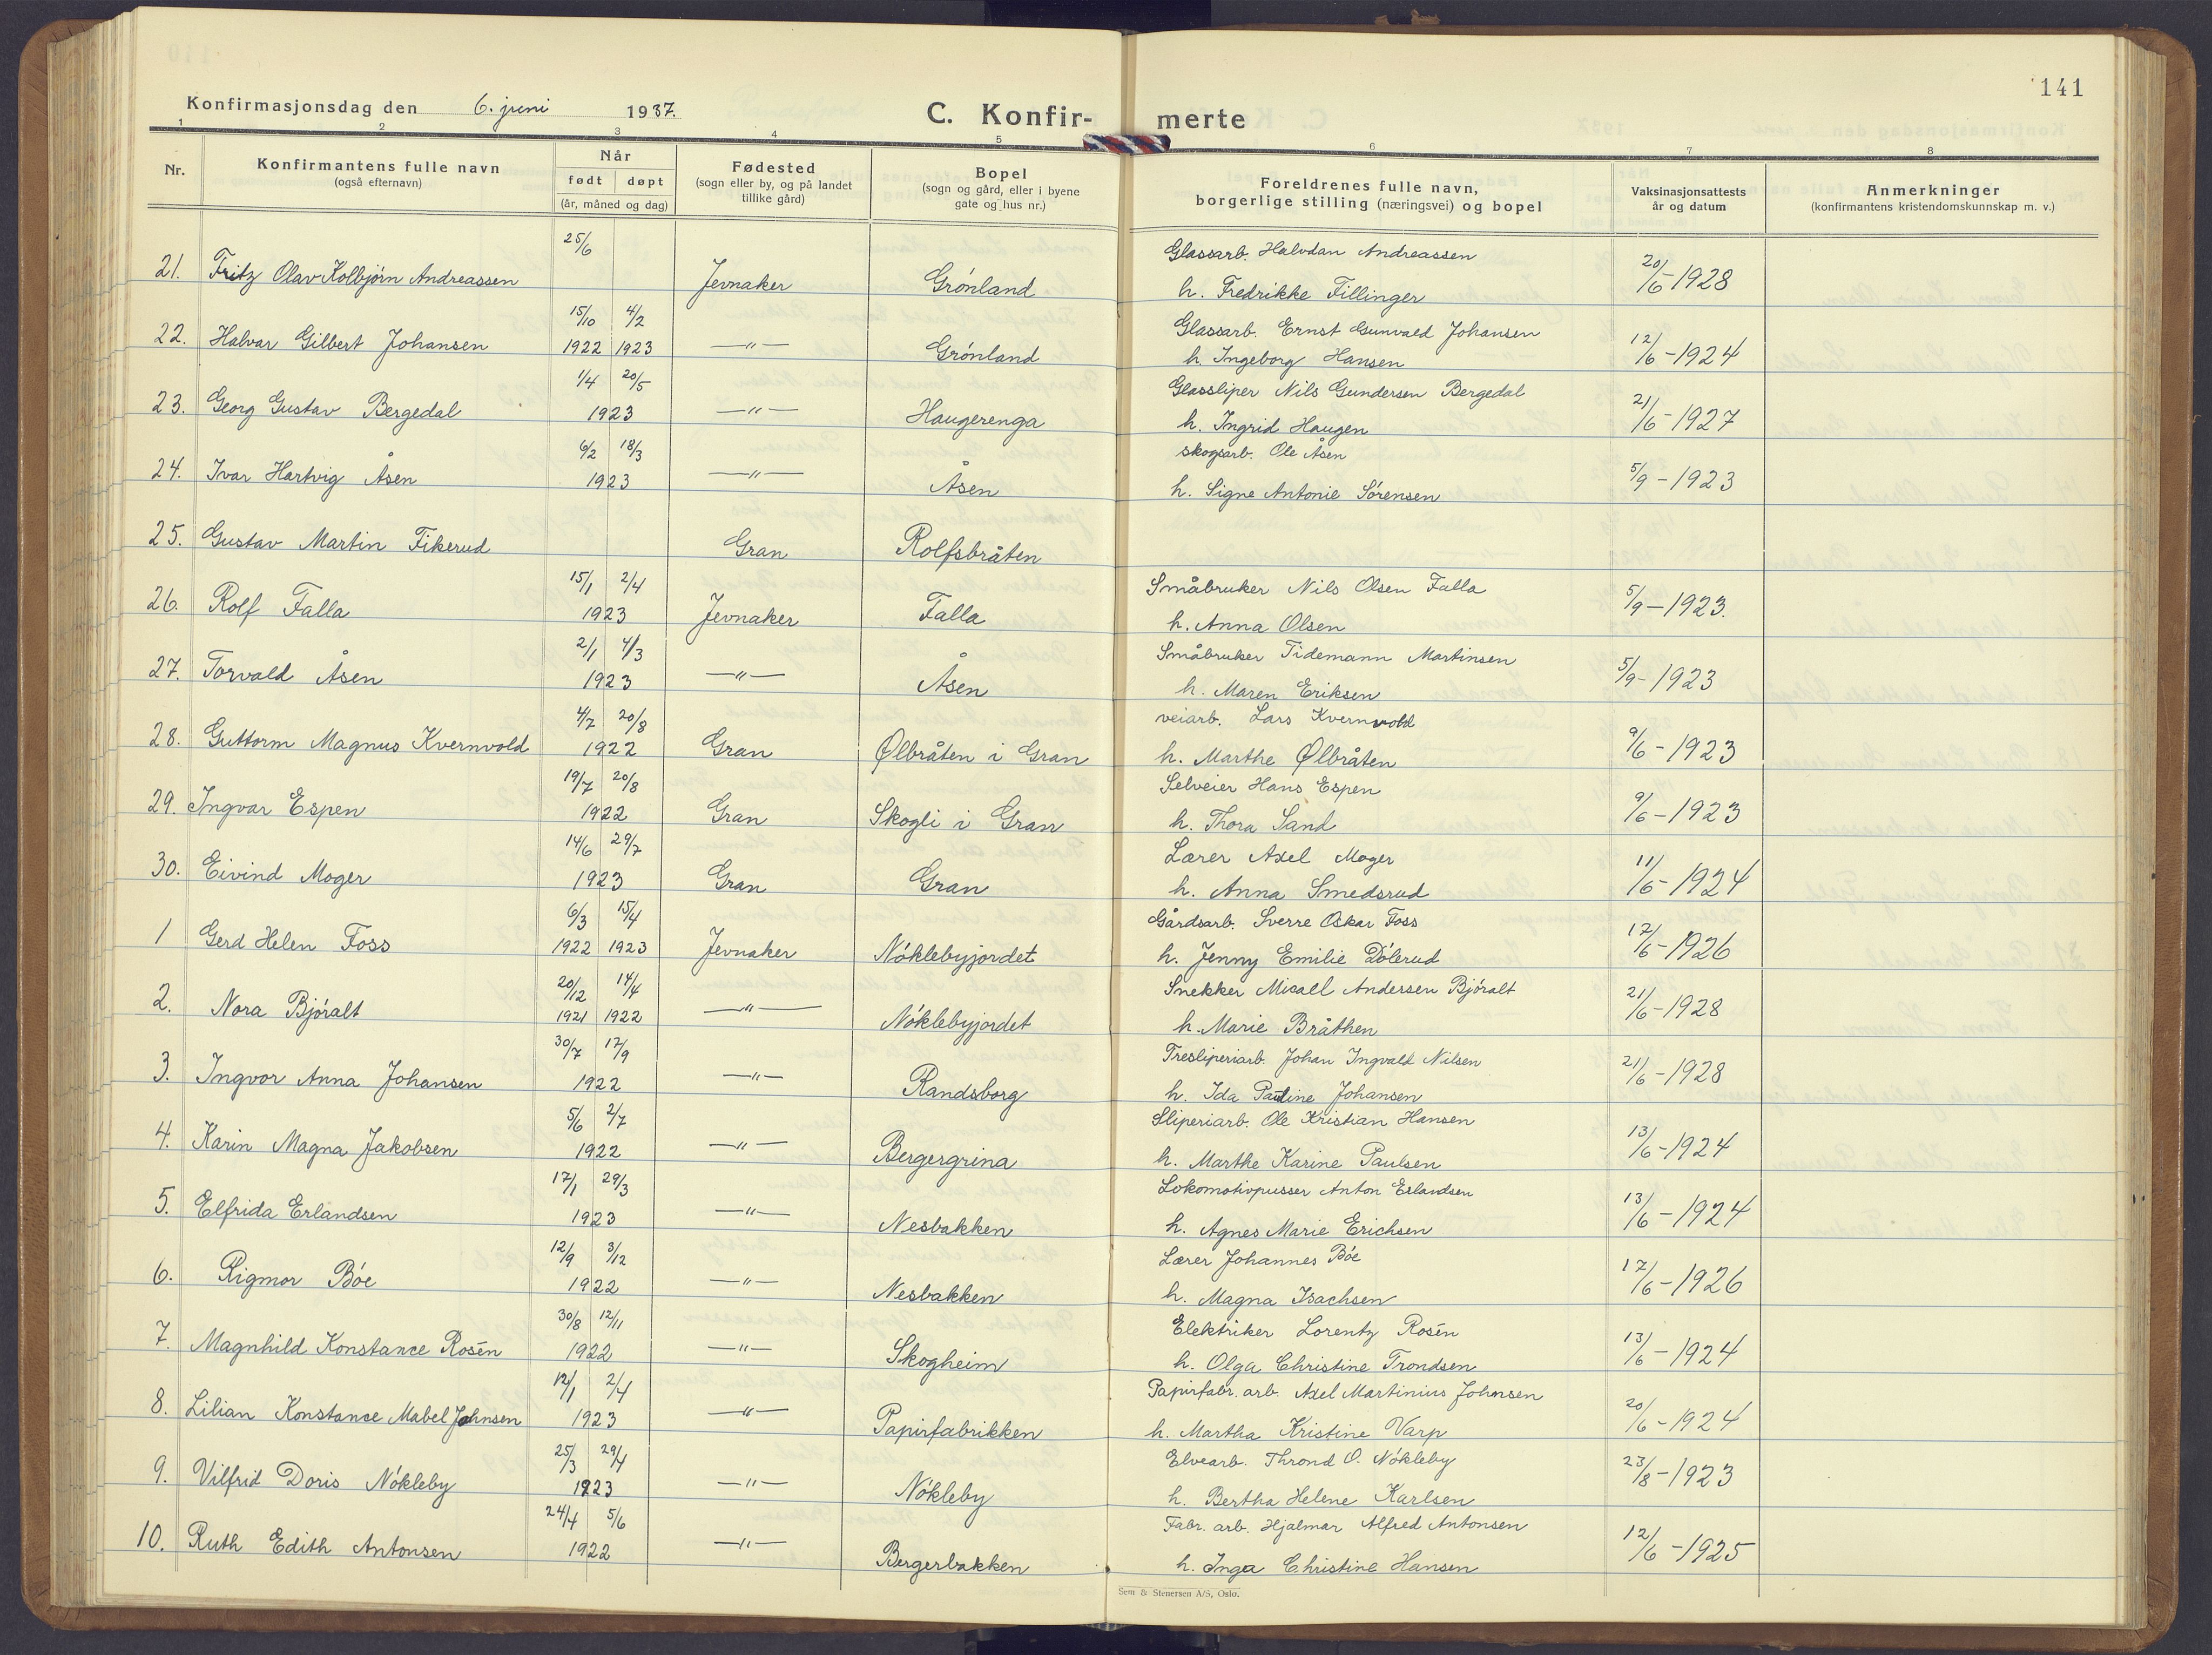 141
Konfirmasjonsdag den 6. juni 1937.
C. Konfir- merte
1 2 3 4 5 6 7 8
Nr.
Konfirmantens fulle navn
(også efternavn)
Når
født døpt
(år, måned og dag)
Fødested
(sogn eller by, og på landet
tillike gård)
Bopel
(sogn og gård, eller i byene
gate og hus nr.)
Foreldrenes fulle navn,
borgerlige stilling (næringsvei) og bopel
Vaksinasjonsattests
år og datum
Anmerkninger
(konfirmantens kristendomskunnskap m. v.)
25/6 Glassarb. Halvdan Andreassen
21. Fritz Olav Kolbjörn Andreassen Jevnaker Grönland h. Fredrikke Fillinger 20/6-1928
15/10 4/2 Glassarb. Ernst Gunvald Johansen
22. Halvar Gilbert Johansen 1922 1923 —"— Grönland h. Ingeborg Hansen 12/6-1924
1/4 20/5 Glassliper Nils Gundersen Bergedal
23. Georg Gustav Bergedal 1923 —"— Haugerenga h. Ingrid Haugen 21/6-1927
6/2 18/3 skogsarb. Ole Åsen
24. Ivar Hartvig Åsen 1923 —"— Åsen h. Signe Antonie Sörensen 5/9-1923
25. Gustav Martin Fikerud Gran Rolfsbråten
15/1 2/4 Småbruker Nils Olsen Falla
26. Rolf Falla 1923 Jevnaker Falla h. Anna Olsen 5/9-1923.
2/1 4/3 Småbruker Tidemann Martinsen
27. Torvald Åsen 1923 —"— Åsen h. Maren Eriksen 5/9-1923
4/7 20/8 veiarb. Lars Kvernvold
28. Guttorm Magnus Kvernvold 1922 Gran Ølbråten i Gran h. Marthe Ølbråten 9/6-1923
19/7 20/8 Selveier Hans Espen
29. Ingvar Espen 1922 Gran Skogli i Gran h. Thora Sand 9/6-1923
14/6 29/7 Lærer Axel Moger
30. Eivind Moger 1923 Gran Gran h. Anna Smedsrud 11/6-1924
6/3 15/4 Gårdsarb. Sverre Oskar Foss
1 Gerd Helen Foss 1922 1923 Jevnaker Nöklebyjordet h. Jenny Emilie Dölerud 17/6-1926
20/12 14/4 Snekker Micall Andersen Björalt
2. Nora Björalt 1921 1922 —"— Nöklebyjordet h. Marie Bråthen 21/6-1928
30/7 17/9 Tresliperiarb. Johan Ingvald Nilsen
3. Ingvor Anna Johansen 1922 —"— Randsborg h. Ida Pauline Johansen 21/6-1928
5/6 2/7 Sliperiarb. Ole Kristian Hansen
4. Karin Magna Jakobsen 1922 —"— Bergergrina h. Marthe Karine Paulsen 13/6-1924
17/1 29/3 Lokomotivpusser Anton Erlandsen
5. Elfrida Erlandsen 1923 —"— Nesbakken h. Agnes Marie Erichsen 13/6-1924
12/9 3/12 Lærer Johannes Böe
6. Rigmor Böe 1922 —"— Nesbakken h. Magna Isachsen 17/6-1926
30/8 12/11 Elektriker Lorentz Rosén
7. Magnhild Konstance Rosén 1922 —"— Skogheim h. Olga Christine Trondsen 13/6-1924
12/1 2/4 Papirfabr. arb. Axel Martinius Johnsen
8. Lilian Konstance Mabel Johnsen 1923 —"— Papirfabrikken h. Martha Kristine Varp 20/6-1924
25/3 29/4 Elvearb. Thrond O. Nökleby
9. Vilfrid Doris Nökleby 1923 —"— Nökleby h. Bertha Helene Karlsen 23/8-1923
24/4 5/6 Fabr. arb. Hjalmar Alfred Antonsen
10. Ruth Edith Antonsen 1922 —"— Bergerbakken h. Inga Christine Hansen 12/6-1925
Sem & Stenersen A/S, Oslo.